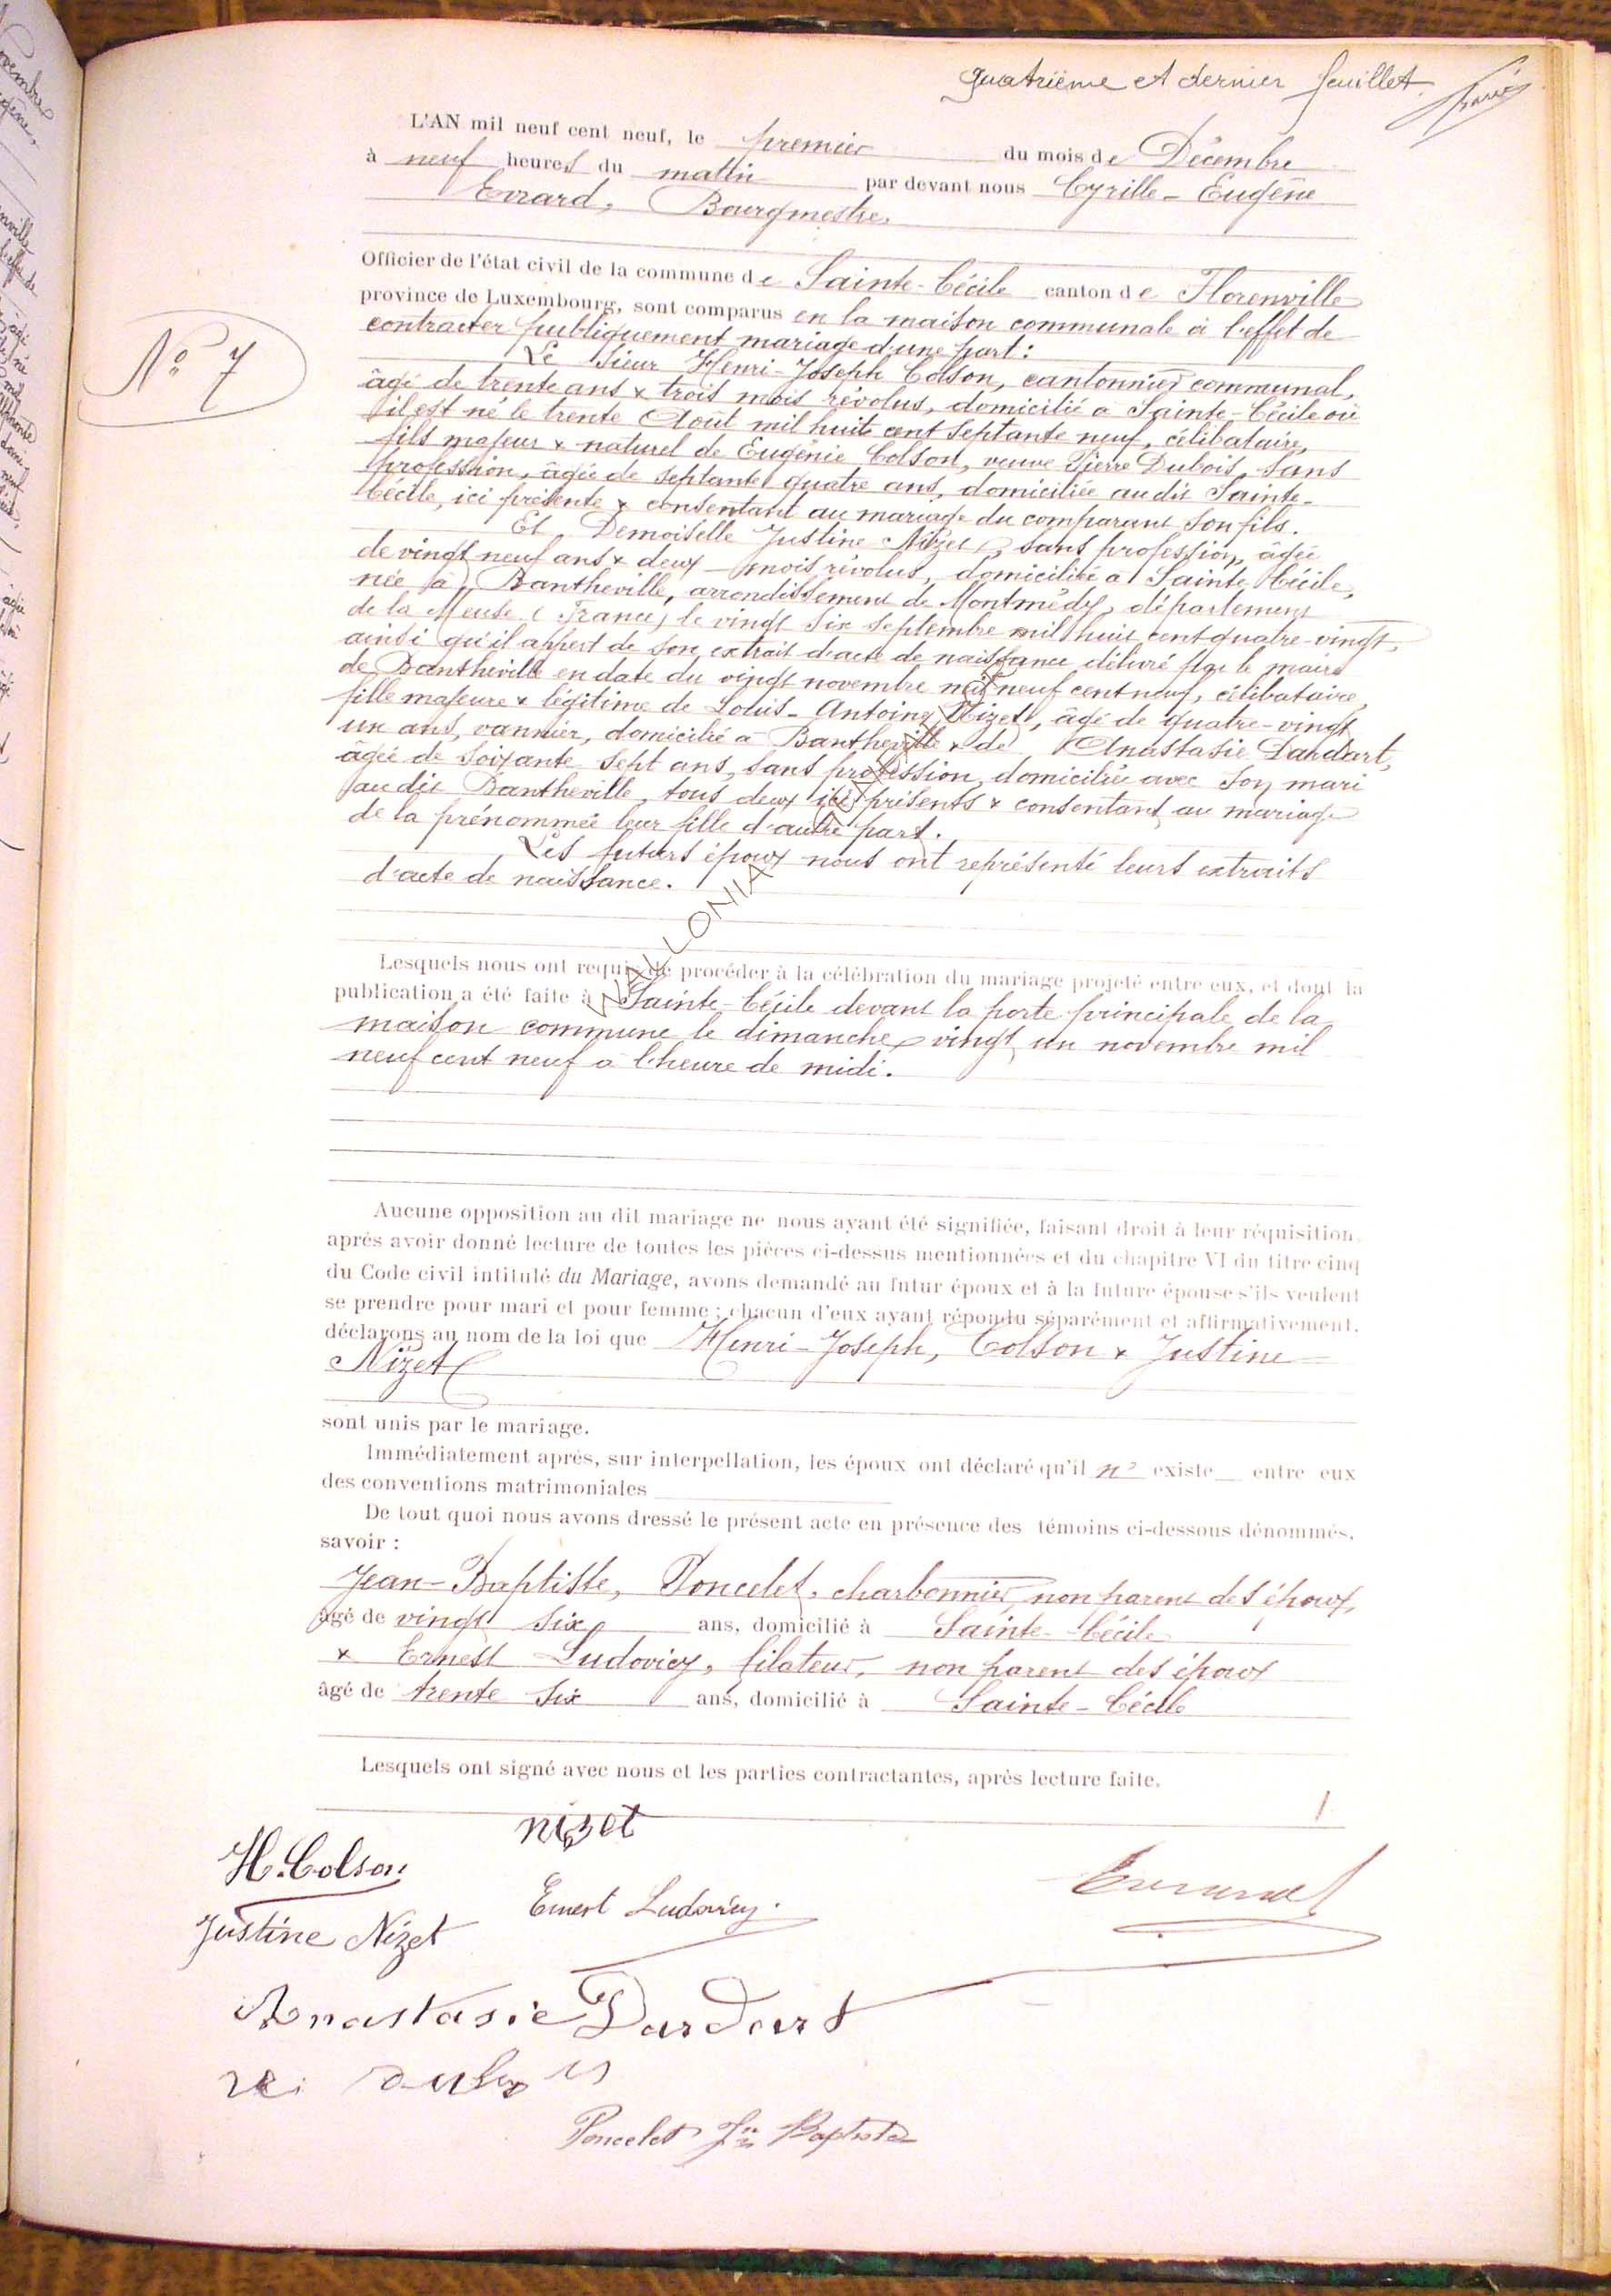 quatrième et dernier feuillet.
L'AN mil neuf cent neuf, le premier du mois de Décembre
à neuf heures du matin par devant nous Cyrille-Eugène
Evrard, Bourgmestre,
Officier de l'état civil de la commune de Sainte-Cécile canton de Florenville
province de Luxembourg, sont comparus en la maison communale à l'effet de
contracter publiquement mariage d'une part :
N° 7
Le Sieur Henri-Joseph Colson, cantonnier communal,
âgé de trente ans & trois mois révolus, domicilié à Sainte-Cécile où
il est né le trente Août mil huit cent septante neuf, célibataire,
fils majeur & naturel de Eugénie Colson, veuve Pierre Dubois, sans
profession, âgée de septante quatre ans, domiciliée au dit Sainte-
Cécile, ici présente & consentant au mariage du comparant son fils.
Et Demoiselle Justine Nizet, sans profession, âgée
de vingt neuf ans & deux mois révolus, domiciliée à Sainte Cécile,
née à Bantheville, arrondissement de Montmédy, département
de la Meuse (France) le vingt six septembre mil huit cent quatre-vingt,
ainsi qu'il appert de son extrait d'acte de naissance délivré par le maire
de Bantheville en date du vingt novembre mil neuf cent neuf, célibataire,
fille majeure & légitime de Louis-Antoine Nizet, âgé de quatre-vingt
un ans, vannier, domicilié à Bantheville & de Anastasie Dardart,
âgée de soixante sept ans, sans profession, domiciliée avec son mari
au dit Bantheville, tous deux ici présents & consentant au mariage
de la prénommée leur fille d'autre part.
Les futurs époux nous ont représenté leurs extraits
d'acte de naissance.
WALLONIA
Lesquels nous ont requis de procéder à la célébration du mariage projeté entre eux, et dont la
publication a été faite à Sainte-Cécile devant la porte principale de la
maison commune le dimanche vingt un novembre mil
neuf cent neuf à l'heure de midi.
Aucune opposition au dit mariage ne nous ayant été signifiée, faisant droit à leur réquisition,
après avoir donné lecture de toutes les pièces ci-dessus mentionnées et du chapitre VI du titre cinq
du Code civil intitulé du Mariage, avons demandé au futur époux et à la future épouse s'ils veulent
se prendre pour mari et pour femme ; chacun d'eux ayant répondu séparément et affirmativement,
déclarons au nom de la loi que Henri-Joseph, Colson & Justine
Nizet
sont unis par le mariage.
Immédiatement après, sur interpellation, les époux ont déclaré qu'il n' existe entre eux
des conventions matrimoniales
De tout quoi nous avons dressé le présent acte en présence des témoins ci-dessous dénommés,
savoir :
Jean-Baptiste, Poncelet, charbonnier, non parent des époux,
âgé de vingt six ans, domicilié à Sainte-Cécile
& Ernest Ludovicy, filateur, non parent des époux
âgé de trente six ans, domicilié à Sainte-Cécile
Lesquels ont signé avec nous et les parties contractantes, après lecture faite.
nizet
H. Colson
Evrard
Ernest Ludovicy.
Justine Nizet
Anastasie Dardart
Poncelet Jn Baptiste